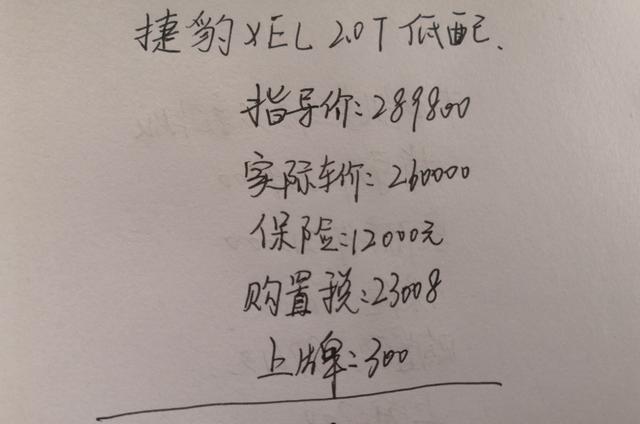 捷豹XEL 2.0T 低配、
指导价:289800
实际车价:260000
保险:12000元
购置税:23008
上牌:300